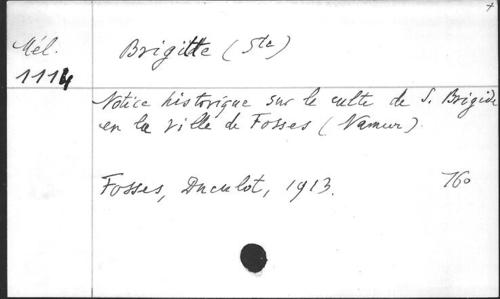 Mél.
1114
Brigitte (Ste)
Notice historique sur le culte de S. Brigide
en la ville de Fosses (Namur).
Fosses, Duculot, 1913.
16o